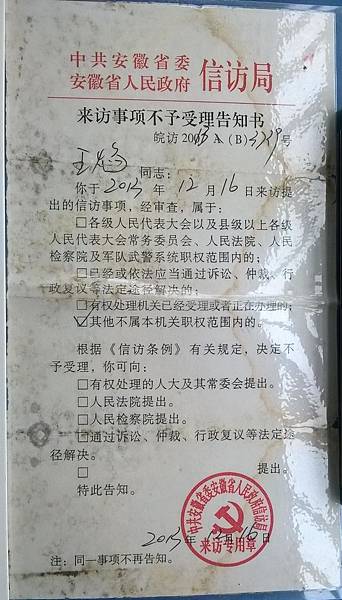 中共安徽省委
安徽省人民政府 信访局
来访事项不予受理告知书
皖访 20 A (B) 号
同志：
你于 2013 年 12 月 16 日来访提
出的信访事项，经审查，属于：
□各级人民代表大会以及县级以上各级
人民代表大会常务委员会、人民法院、人民
检察院及军队武警系统职权范围内的；
□已经或依法应当通过诉讼、仲裁、行
政复议等法定途径解决的；
□有权处理机关已经受理或者正在办理的；
☑其他不属本机关职权范围内的。
根据《信访条例》有关规定，决定不
予受理，你可向：
□有权处理的人大及其常委会提出。
□人民法院提出。
□人民检察院提出。
□通过诉讼、仲裁、行政复议等法定途
径解决。
□ 提出。
特此告知。
中共安徽省委安徽省人民政府信访局
来访专用章
2013 年 12 月 16 日
注：同一事项不再告知。